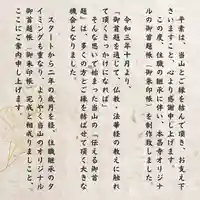 平素は、当山とご縁を頂き、お支え下
さいますこと、心より感謝申し上げます。
この度、住職の継承に伴い、本昌寺オリジナ
ルの御首題帳（御朱印帳）を制作致しました。
令和三年十月より、
「御首題を通じて、仏教・法華経の教えに触れ
て頂くきっかけになれば」
そんな思いで始まった当山の「伝える御首
題」。多くの方々とご縁を結ばせて頂く大きな
機会となりました。
スタートから二年の歳月を経、住職継承のタ
イミングも重なり、ようやく当山のオリジナル
御首題帳（御朱印帳）完成と相成りましたこと、
ここにご案内申し上げます。